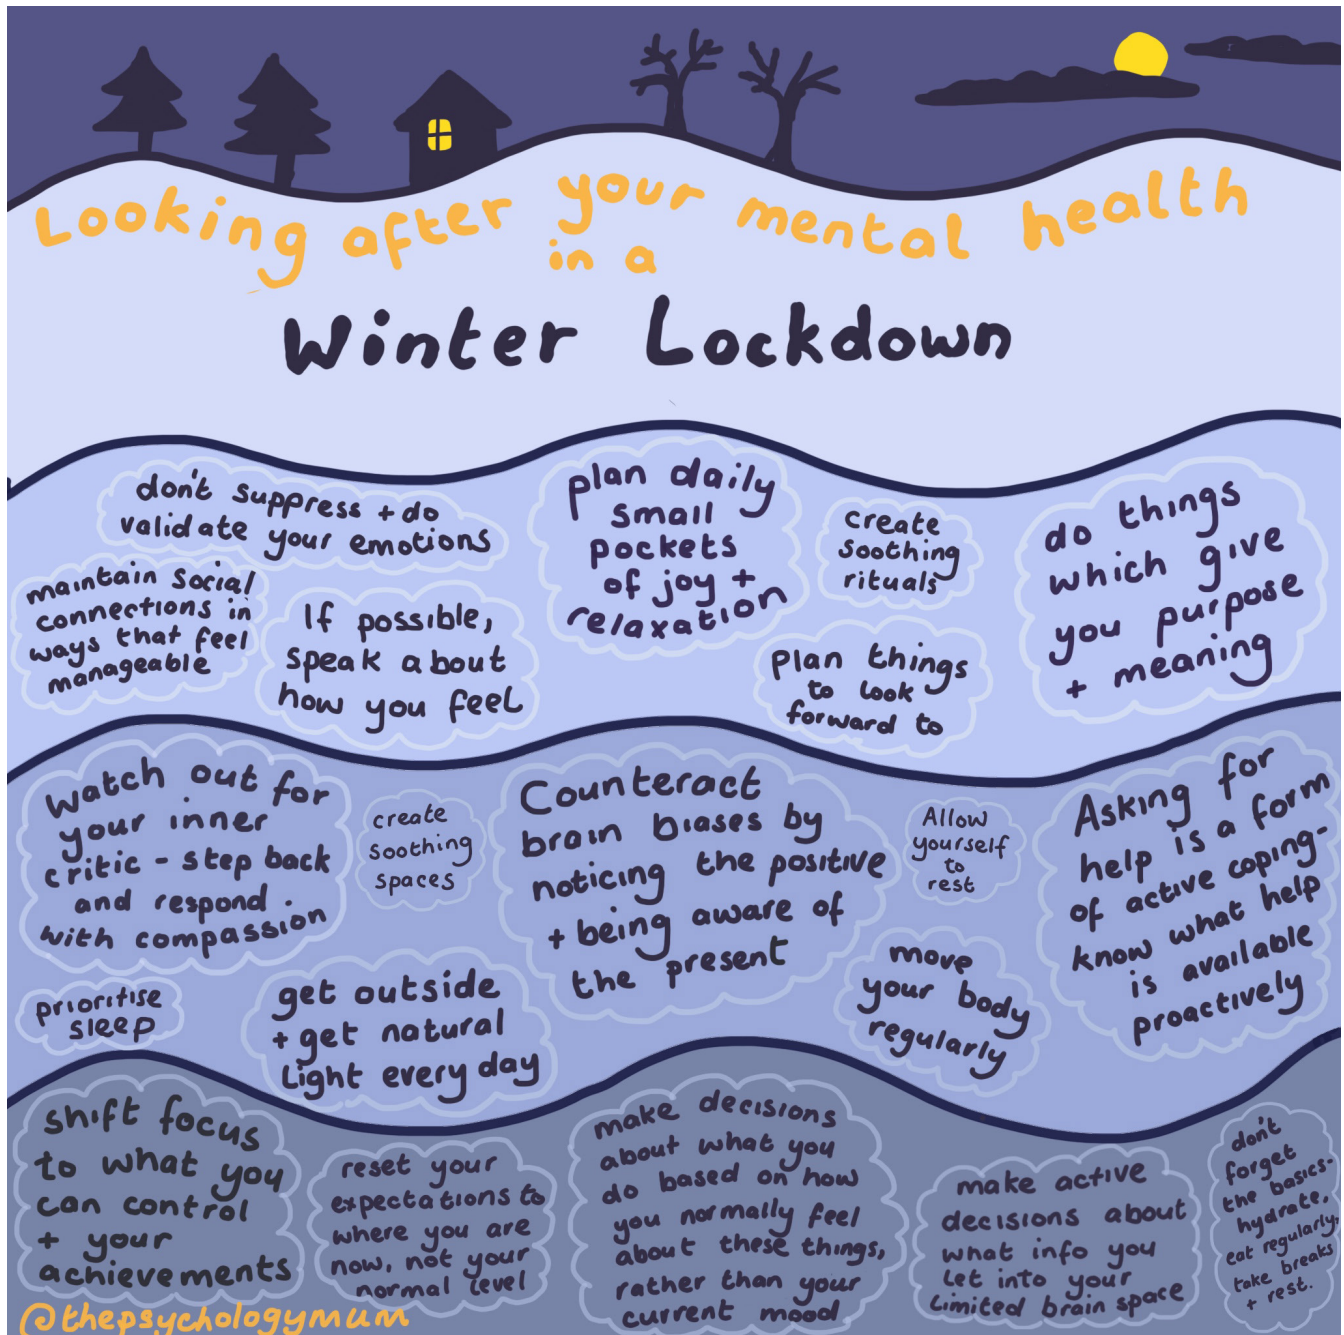 Looking after your mental health
in a
Winter Lockdown
don't suppress + do
validate your emotions
maintain social
connections in
ways that feel
manageable
If possible,
speak about
how you feel
plan daily
small
pockets
of joy +
relaxation
create
soothing
rituals
plan things
to look
forward to
do things
which give
you purpose
+ meaning
watch out for
your inner
critic - step back
and respond
with compassion
create
soothing
spaces
Counteract
brain biases by
noticing the positive
+ being aware of
the present
Allow
yourself
to
rest
Asking for
help is a form
of active coping-
know what help
is available
proactively
prioritise
sleep
get outside
+ get natural
light every day
move
your body
regularly
shift focus
to what you
can control
+ your
achievements
reset your
expectations to
where you are
now, not your
normal level
make decisions
about what you
do based on how
you normally feel
about these things,
rather than your
current mood
make active
decisions about
what info you
let into your
limited brain space
don't
forget
the basics-
hydrate,
eat regularly,
take breaks
+ rest.
@thepsychologymum